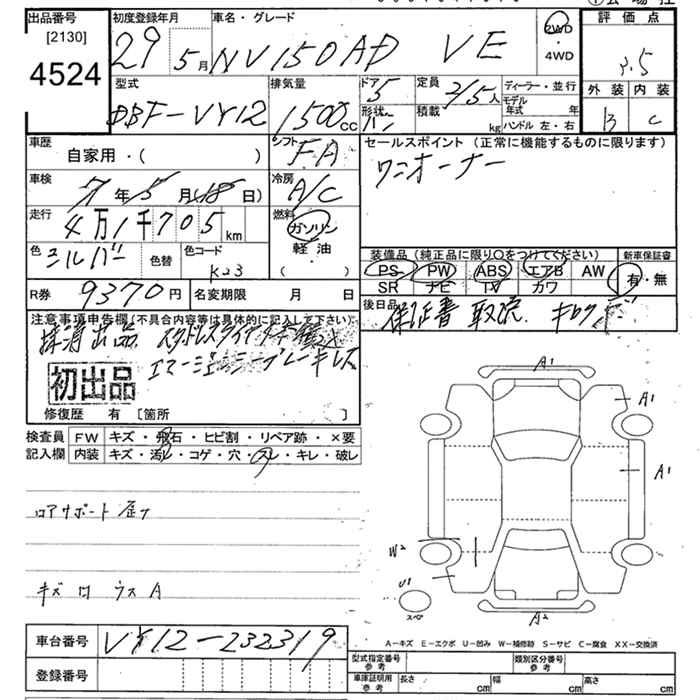 出品番号 初度登録年月 車名・グレード 評価点
[2130]
4524
29 5月 NV150AD VE 2WD・4WD 3.5
型式 排気量 ドア 5 定員 2/5人 ディーラー・並行 外装 内装
DBF-VY12 1500cc 形状 バン 積載 kg モデル年式 年 B C
ハンドル 左・右
車歴 自家用・( ) シフト FA セールスポイント(正常に機能するものに限ります)
ワンオーナー
車検 7年5月(18日) 冷房 A/C
走行 4万1千705km 燃料 ガソリン・軽油 ( )
色 シルバー 色替 色コード K23
装備品(純正品に限り○をつけてください) 新車保証書
PS PW ABS エアB AW 有・無
SR ナビ TV カワ
R券 9370円 名変期限 月 日
後日品 保証書 取説
注意事項申告欄(不具合内容等は具体的に記入して下さい)
初出品
修復歴 有 [箇所 ]
検査員 FW キズ・飛石・ヒビ割・リペア跡・×要
記入欄 内装 キズ・汚レ・コゲ・穴・スレ・キレ・破レ
ロアサポート 歪ナ
キズ 凹 ウス A
A1
A1
A1
W2
U1
スペア
A2
A-キズ E-エクボ U-凹み W-補修跡 S-サビ C-腐食 XX-交換済
車台番号 VY12-232319
登録番号
型式指定番号 参考 類別区分番号 参考
車庫証明用 参考 長さ cm 幅 cm 高さ cm